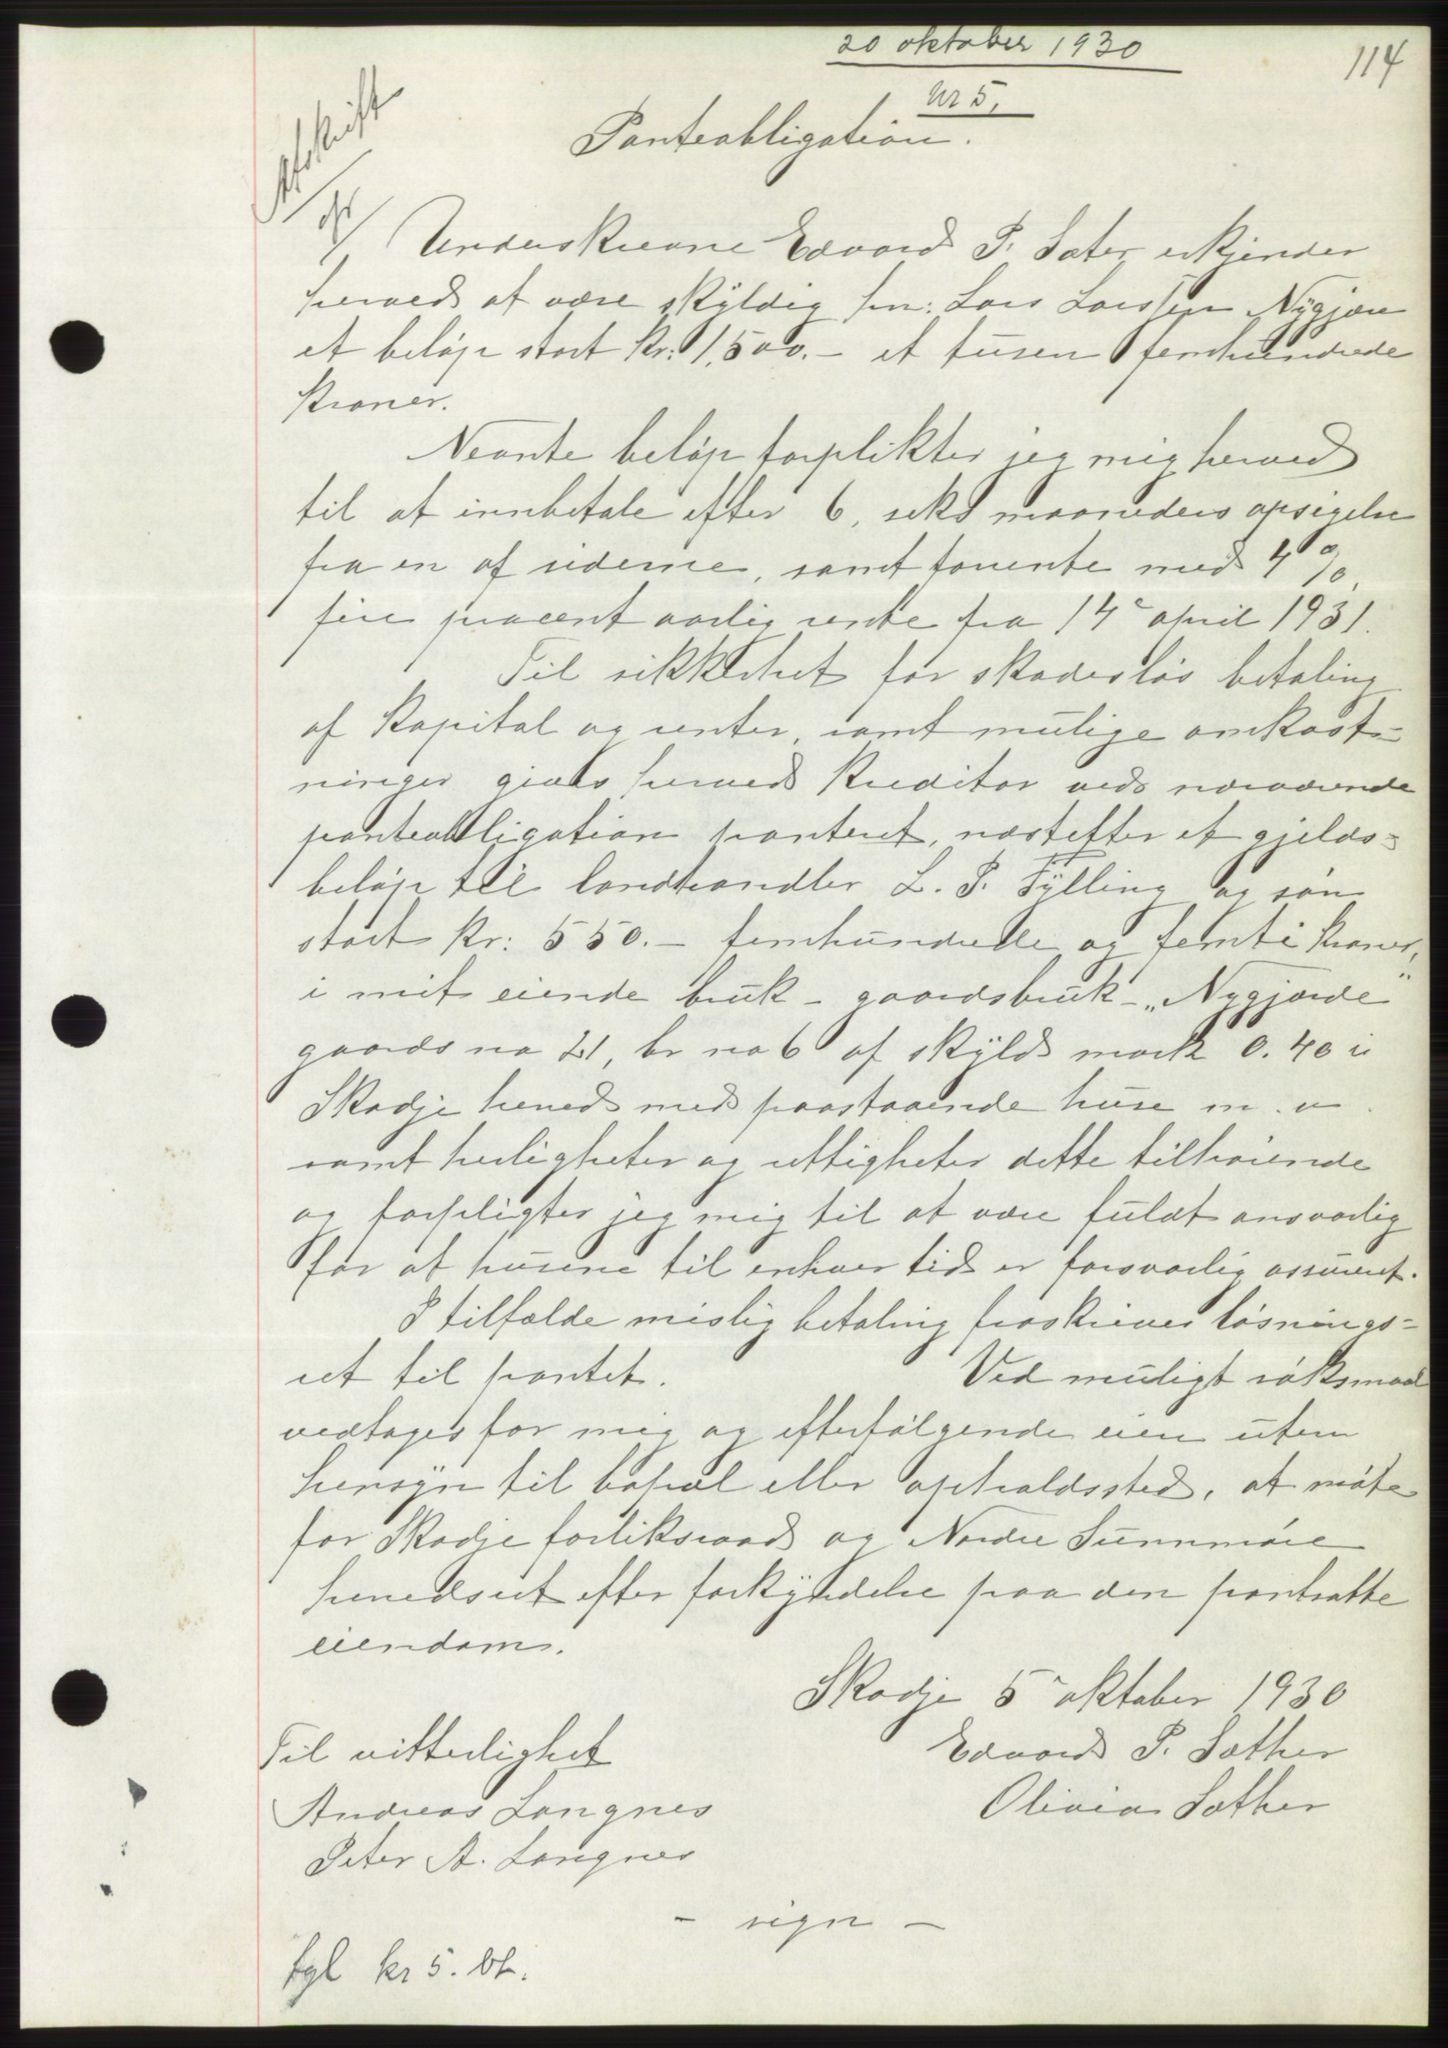 20 oktober 1930
114
Nr 5.
Afskrift
Panteobligation.
Underskrevne Edvard P. Sæter erkjender
herved at være skyldig hr: Lars Larssen Nygjære
et beløp stort kr: 1,500.- et tusen femhundrede
kroner.
Nevnte beløp forplikter jeg mig herved
til at innbetale efter 6, seks maaneders opsigelse
fra en af siderne, samt forrente med 4 %,
fire procent aarlig rente fra 14 april 1931.
Til sikkerhet for skadesløs betaling
af kapital og renter, samt mulige omkost-
ninger gives herved kreditor ved nærværende
panteobligation panteret, næst efter et gjelds-
beløp til landhandler L. P. Fylling og søn
stort kr: 550.- femhundrede og femti kroner,
i mit eiende bruk - gaardsbruk - „Nygjærde"
gaards no 21, br no 6 af skyld mark 0.40 i
Skodje herred med paastaaende huse m. v.
samt herligheter og rettigheter dette tilhørende
og forpligter jeg mig til at være fuldt ansvarlig
for at husene til enhver tid er forsvarlig assureret.
I tilfælde mislig betaling fraskrives løsnings-
ret til pantet. Ved muligt søksmaal
vedtages for mig og efterfølgende eiere uten
hensyn til bopæl eller opholdssted, at møte
for Skodje forliksraad og Nordre Sunnmøre
herredsret efter forkyndelse paa den pantsatte
eiendom.
Skodje 5 oktober 1930
Til vitterlighet
Edvard P. Sæther
Andreas Langnes
Olivia Sæther
Peter A. Langnes
- sign -
tgl kr 5. bt.